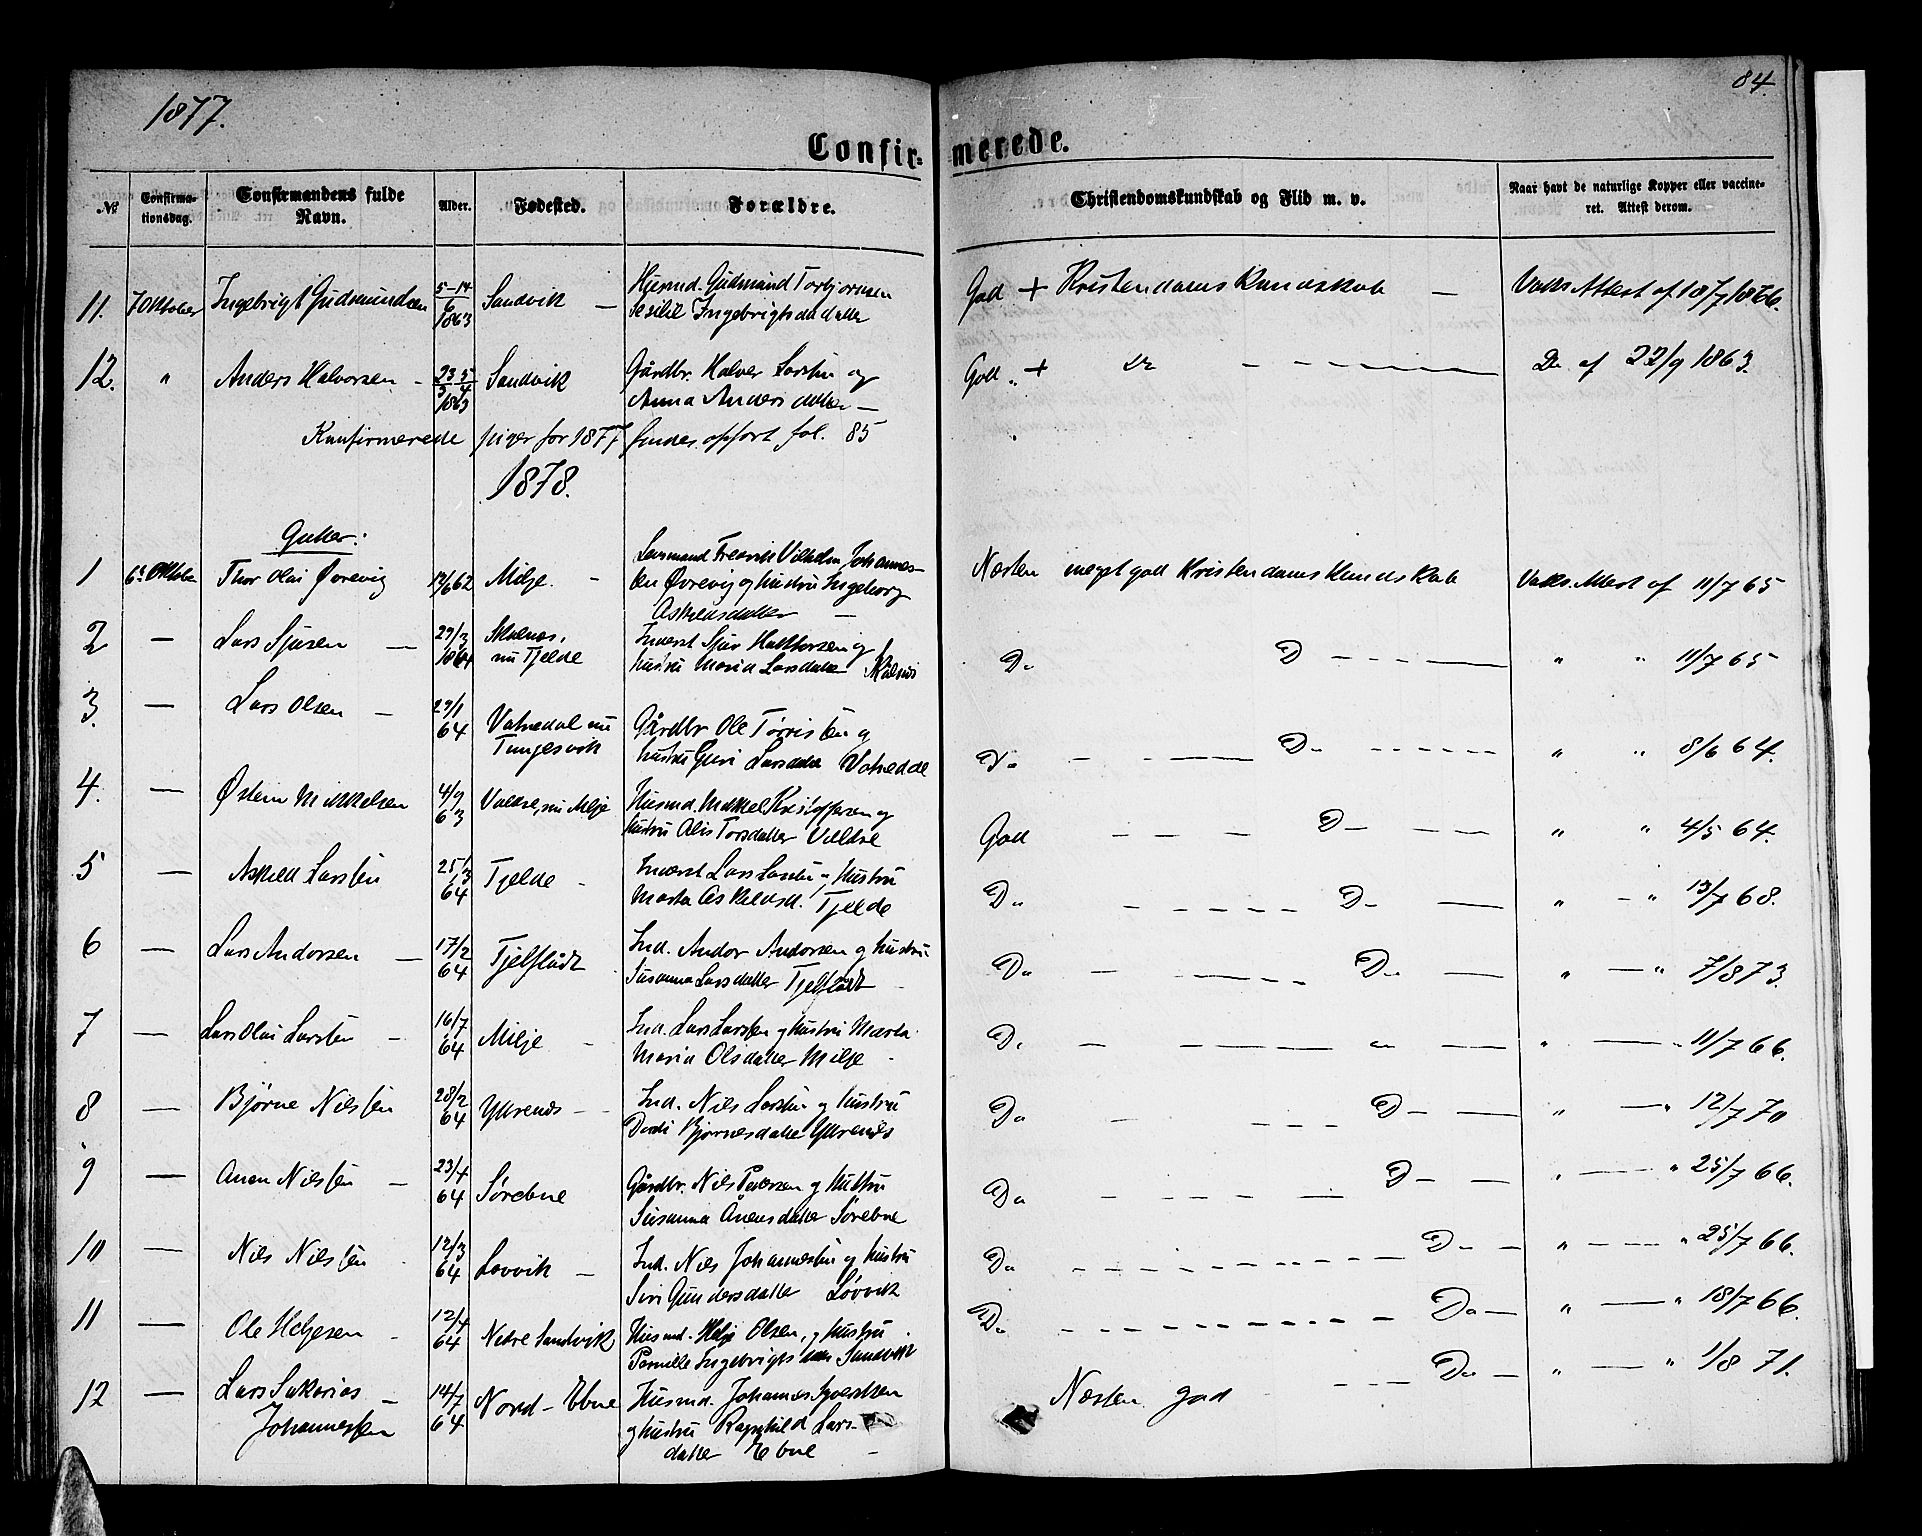 1877.
84.
Confir- merede.
№ Confirmationsdag. Confirmandens fulde Navn. Alder. Fødested. Forældre. Christendomskundskab og Flid m. v. Naar havt de naturlige Kopper eller vaccineret. Attest derom.
11. 7 Oktober Ingebrigt Gudmundsen 1863 Sandvik — Husmd. Gudmund Torbjørnsen God + Kristendoms Kundskab — Vaks. Attest af 18/7 1866.
Ingebrigtsdatter
12. " Anders Halvorsen - 1863 Sandvik Gårdbr. Halvor Larsen og God. + — Do af 22/9 1863.
Anna Andersdatter —
Konfirmerede piger for 1877 findes opført fol. 85
1878.
Gutter:
1 6te Oktober Thor Olai Øvrevig 12/6 62 Milje. - Johannes-
sen Øvrevig og hustru Ingeborg Næsten meget god Kristendoms Kundskab Vaks. Attest af 11/7 65
Askelsdatter —
2 — Lars Sjursen — 29/3 1864 nu Tjelde Inderst Sjur og
hustru Maria Larsdatter Do D — " " 11/7 65
3. — Lars Olsen — 29/1 64 Vatnedal nu Tungesvik Gårdbr Ole og
hustru Guri Larsdatter Do — Do — " " 8/6 64.
4. — Østen Mikkelsen 4/9 63 nu Milje Husmd. Mikkel Kristoffersen og
hustru Torsdatter God — D — " " 4/5 64.
5 — Askild Larsen 25/3 64 Tjelde - Inderst Lars Larsen og Hustru
Marta Askeldsd. Tjelde Do — D — " — " 13/7 68.
6 — Lars Andorsen — 17/2 64 Tjelflådt Ind. Andor Andorsen og hustru
Susanna Larsdatter Tjelflådt Do — Do — " — " 7/8 73.
7 — Lars Olai Larsen - 16/7 64 Milje - Ind. Lars Larsen og Hustru Marta
Maria Olsdatter Milje Do — " — " 11/7 66.
8 — Bjørne Nilsen 28/2 64 Ytrenes - Ind. Nils Larsen og Hustru
Bjørnesdatter Ytrenes Do — D — " — " 12/7 70
9 — Anen Nilsen — 23/4 64 Sørebne Gårdbr. Nils Pedersen og Hustru
Susanna Ånensdatter Sørebne Do — D — " — " 25/7 66.
10 — Nils Nilsen 12/3 64 Løvvik — Ind. Nils Johannesen og Hustru
Siri Gundersdatter Løvvik Do — Do — " — " 25/7 66.
11 — Ole Heljesen - 12/4 64 Nedre Sandvik Husmd. Helje Olsen, og Hustru
Pernille Sandvik Do — Do — " — " 18/7 66.
12 — Lars Sakarias — Johannessen 14/7 64 Nord-Ebne Husmd. Johannes
og hustru Ragnhild Lars- Næsten god — Do — " — " 1/8 71.
datter Ebne —